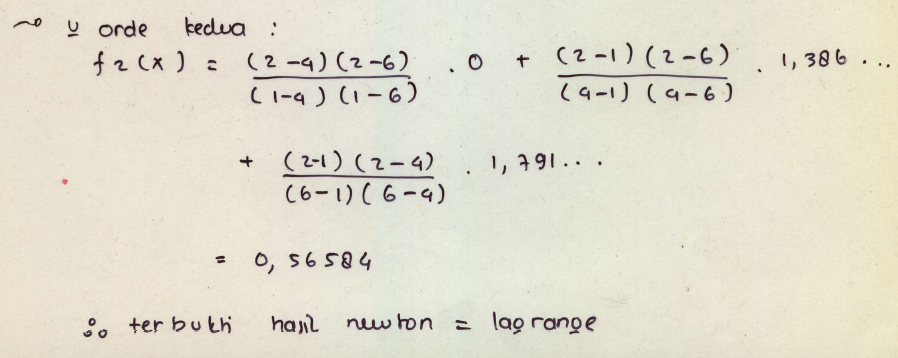 ~ u orde kedua :
f2(x) = (2-4)(2-6) / (1-4)(1-6) . 0 + (2-1)(2-6) / (4-1)(4-6) . 1,386 ...
+ (2-1)(2-4) / (6-1)(6-4) . 1,791...
= 0,56584
∴ terbukti hasil newton = lagrange